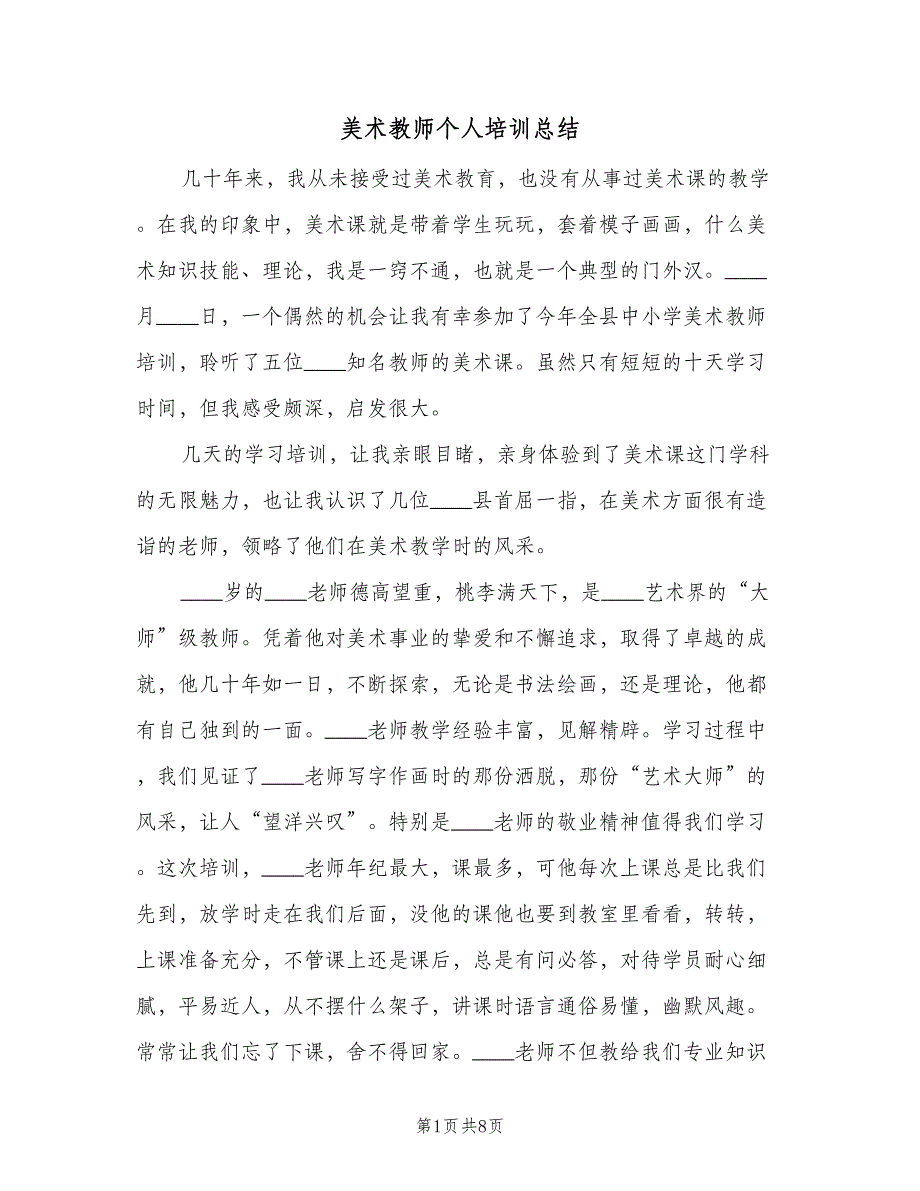 美术教师个人培训总结
几十年来，我从未接受过美术教育，也没有从事过美术课的教学
。在我的印象中，美术课就是带着学生玩玩，套着模子画画，什么美
术知识技能、理论，我是一窍不通，也就是一个典型的门外汉。____
月____日，一个偶然的机会让我有幸参加了今年全县中小学美术教师
培训，聆听了五位____知名教师的美术课。虽然只有短短的十天学习
时间，但我感受颇深，启发很大。
几天的学习培训，让我亲眼目睹，亲身体验到了美术课这门学科
的无限魅力，也让我认识了几位____县首屈一指，在美术方面很有造
诣的老师，领略了他们在美术教学时的风采。
____岁的____老师德高望重，桃李满天下，是____艺术界的“大
师”级教师。凭着他对美术事业的挚爱和不懈追求，取得了卓越的成
就，他几十年如一日，不断探索，无论是书法绘画，还是理论，他都
有自己独到的一面。____老师教学经验丰富，见解精辟。学习过程中
，我们见证了____老师写字作画时的那份洒脱，那份“艺术大师”的
风采，让人“望洋兴叹”。特别是____老师的敬业精神值得我们学习
。这次培训，____老师年纪最大，课最多，可他每次上课总是比我们
先到，放学时走在我们后面，没他的课他也要到教室里看看，转转，
上课准备充分，不管课上还是课后，总是有问必答，对待学员耐心细
腻，平易近人，从不摆什么架子，讲课时语言通俗易懂，幽默风趣。
常常让我们忘了下课，舍不得回家。____老师不但教给我们专业知识
第1页 共8页